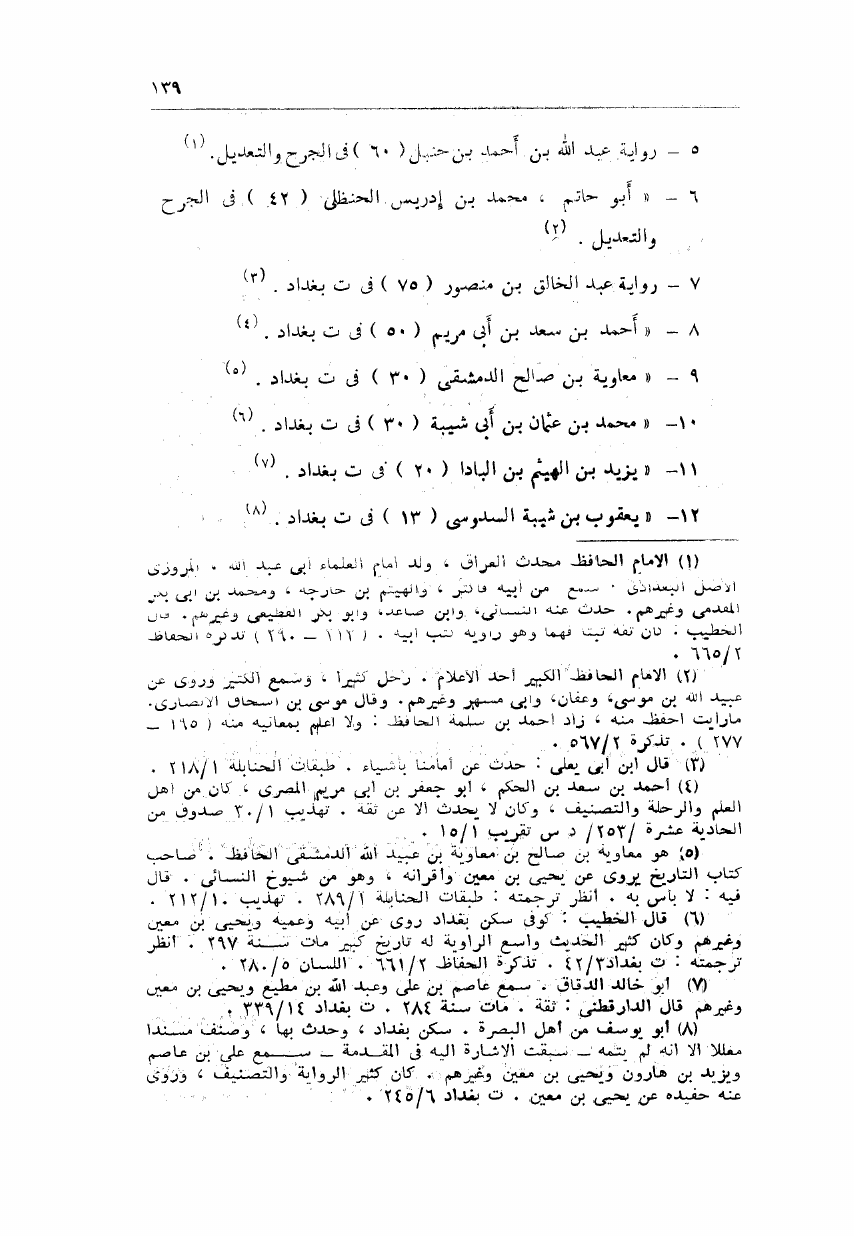 ١٣٩
٥ – رواية عبد الله بن أحمد بن حنبل ( ٦٠ ) فى الجرح والتعديل . (١)
٦ – « أبو حاتم ، محمد بن إدريس الحنظلى ( ٤٢ ) فى الجرح
والتعديل . (٢)
٧ – رواية عبد الخالق بن منصور ( ٧٥ ) فى ت بغداد . (٣)
٨ – « أحمد بن سعد بن أبى مريم ( ٥٠ ) فى ت بغداد . (٤)
٩ – « معاوية بن صالح الدمشقى ( ٣٠ ) فى ت بغداد . (٥)
١٠– « محمد بن عثمان بن أبى شيبة ( ٣٠ ) فى ت بغداد . (٦)
١١– « يزيد بن الهيثم بن البادا ( ٢٠ ) فى ت بغداد . (٧)
١٢– « يعقوب بن شيبة السدوسى ( ١٣ ) فى ت بغداد . (٨)
(١) الامام الحافظ محدث العراق ، ولد امام العلماء أبى عبد الله . المروزى
الأصل البغدادى . سمع من أبيه فأكثر ، والهيثم بن خارجه ، ومحمد بن ابى بكر
المقدمى وغيرهم . حدث عنه النسائى، وابن صاعد، وأبو بكر القطيعى وغيرهم . قال
الخطيب : كان ثقة ثبتا فهما وهو راوية كتب أبيه . ( ٢١٣ – ٢٩٠ ) . تذكرة الحفاظ
٦٦٥/٢ .
(٢) الامام الحافظ الكبير أحد الأعلام . رحل كثيرا ، وسمع الكثير وروى عن
عبيد الله بن موسى، وعفان، وابى مسهر وغيرهم . وقال موسى بن اسحاق الأنصارى.
مارايت احفظ منه ، زاد احمد بن سلمة الحافظ : ولا اعلم بمعانيه منه ( ١٦٥ –
٢٧٧ ) . تذكرة ٥٦٧/٢ .
(٣) قال ابن أبى يعلى : حدث عن أمامنا بأشياء . طبقات الحنابلة ٢١٨/١ .
(٤) أحمد بن سعد بن الحكم ، أبو جعفر بن أبى مريم المصرى ، كان من اهل
العلم والرحلة والتصنيف ، وكان لا يحدث الا عن ثقة . تهذيب ٣٠/١ صدوق من
الحادية عشرة /٢٥٣/ د س تقريب ١٥/١ .
(٥) هو معاوية بن صالح بن معاوية بن عبيد الله الدمشقى الحافظ . صاحب
كتاب التاريخ يروى عن يحيى بن معين وأقرانه ، وهو من شيوخ النسائى . قال
فيه : لا بأس به . أنظر ترجمته : طبقات الحنابلة ٢٨٩/١ . تهذيب ٢١٢/١٠ .
(٦) قال الخطيب : كوفى سكن بغداد روى عن أبيه وعميه ويحيى بن معين
وغيرهم وكان كثير الحديث واسع الراوية له تاريخ كبير مات سنة ٢٩٧ . أنظر
ترجمته : ت بغداد٤٢/٣ . تذكرة الحفاظ ٦٦١/٢ . اللسان ٢٨٠/٥ .
(٧) أبو خالد الدقاق . سمع عاصم بن على وعبد الله بن مطيع ويحيى بن معين
وغيرهم قال الدارقطنى : ثقة . مات سنة ٢٨٤ . ت بغداد ٣٣٩/١٤ .
(٨) أبو يوسف من أهل البصرة . سكن بغداد ، وحدث بها ، وصنف مسندا
معللا الا انه لم يتمه – سبقت الاشارة اليه فى المقدمة – سمع على بن عاصم
ويزيد بن هارون ويحيى بن معين وغيرهم . كان كثير الرواية والتصنيف ، وروى
عنه حفيده عن يحيى بن معين . ت بغداد ٢٤٥/٦ .